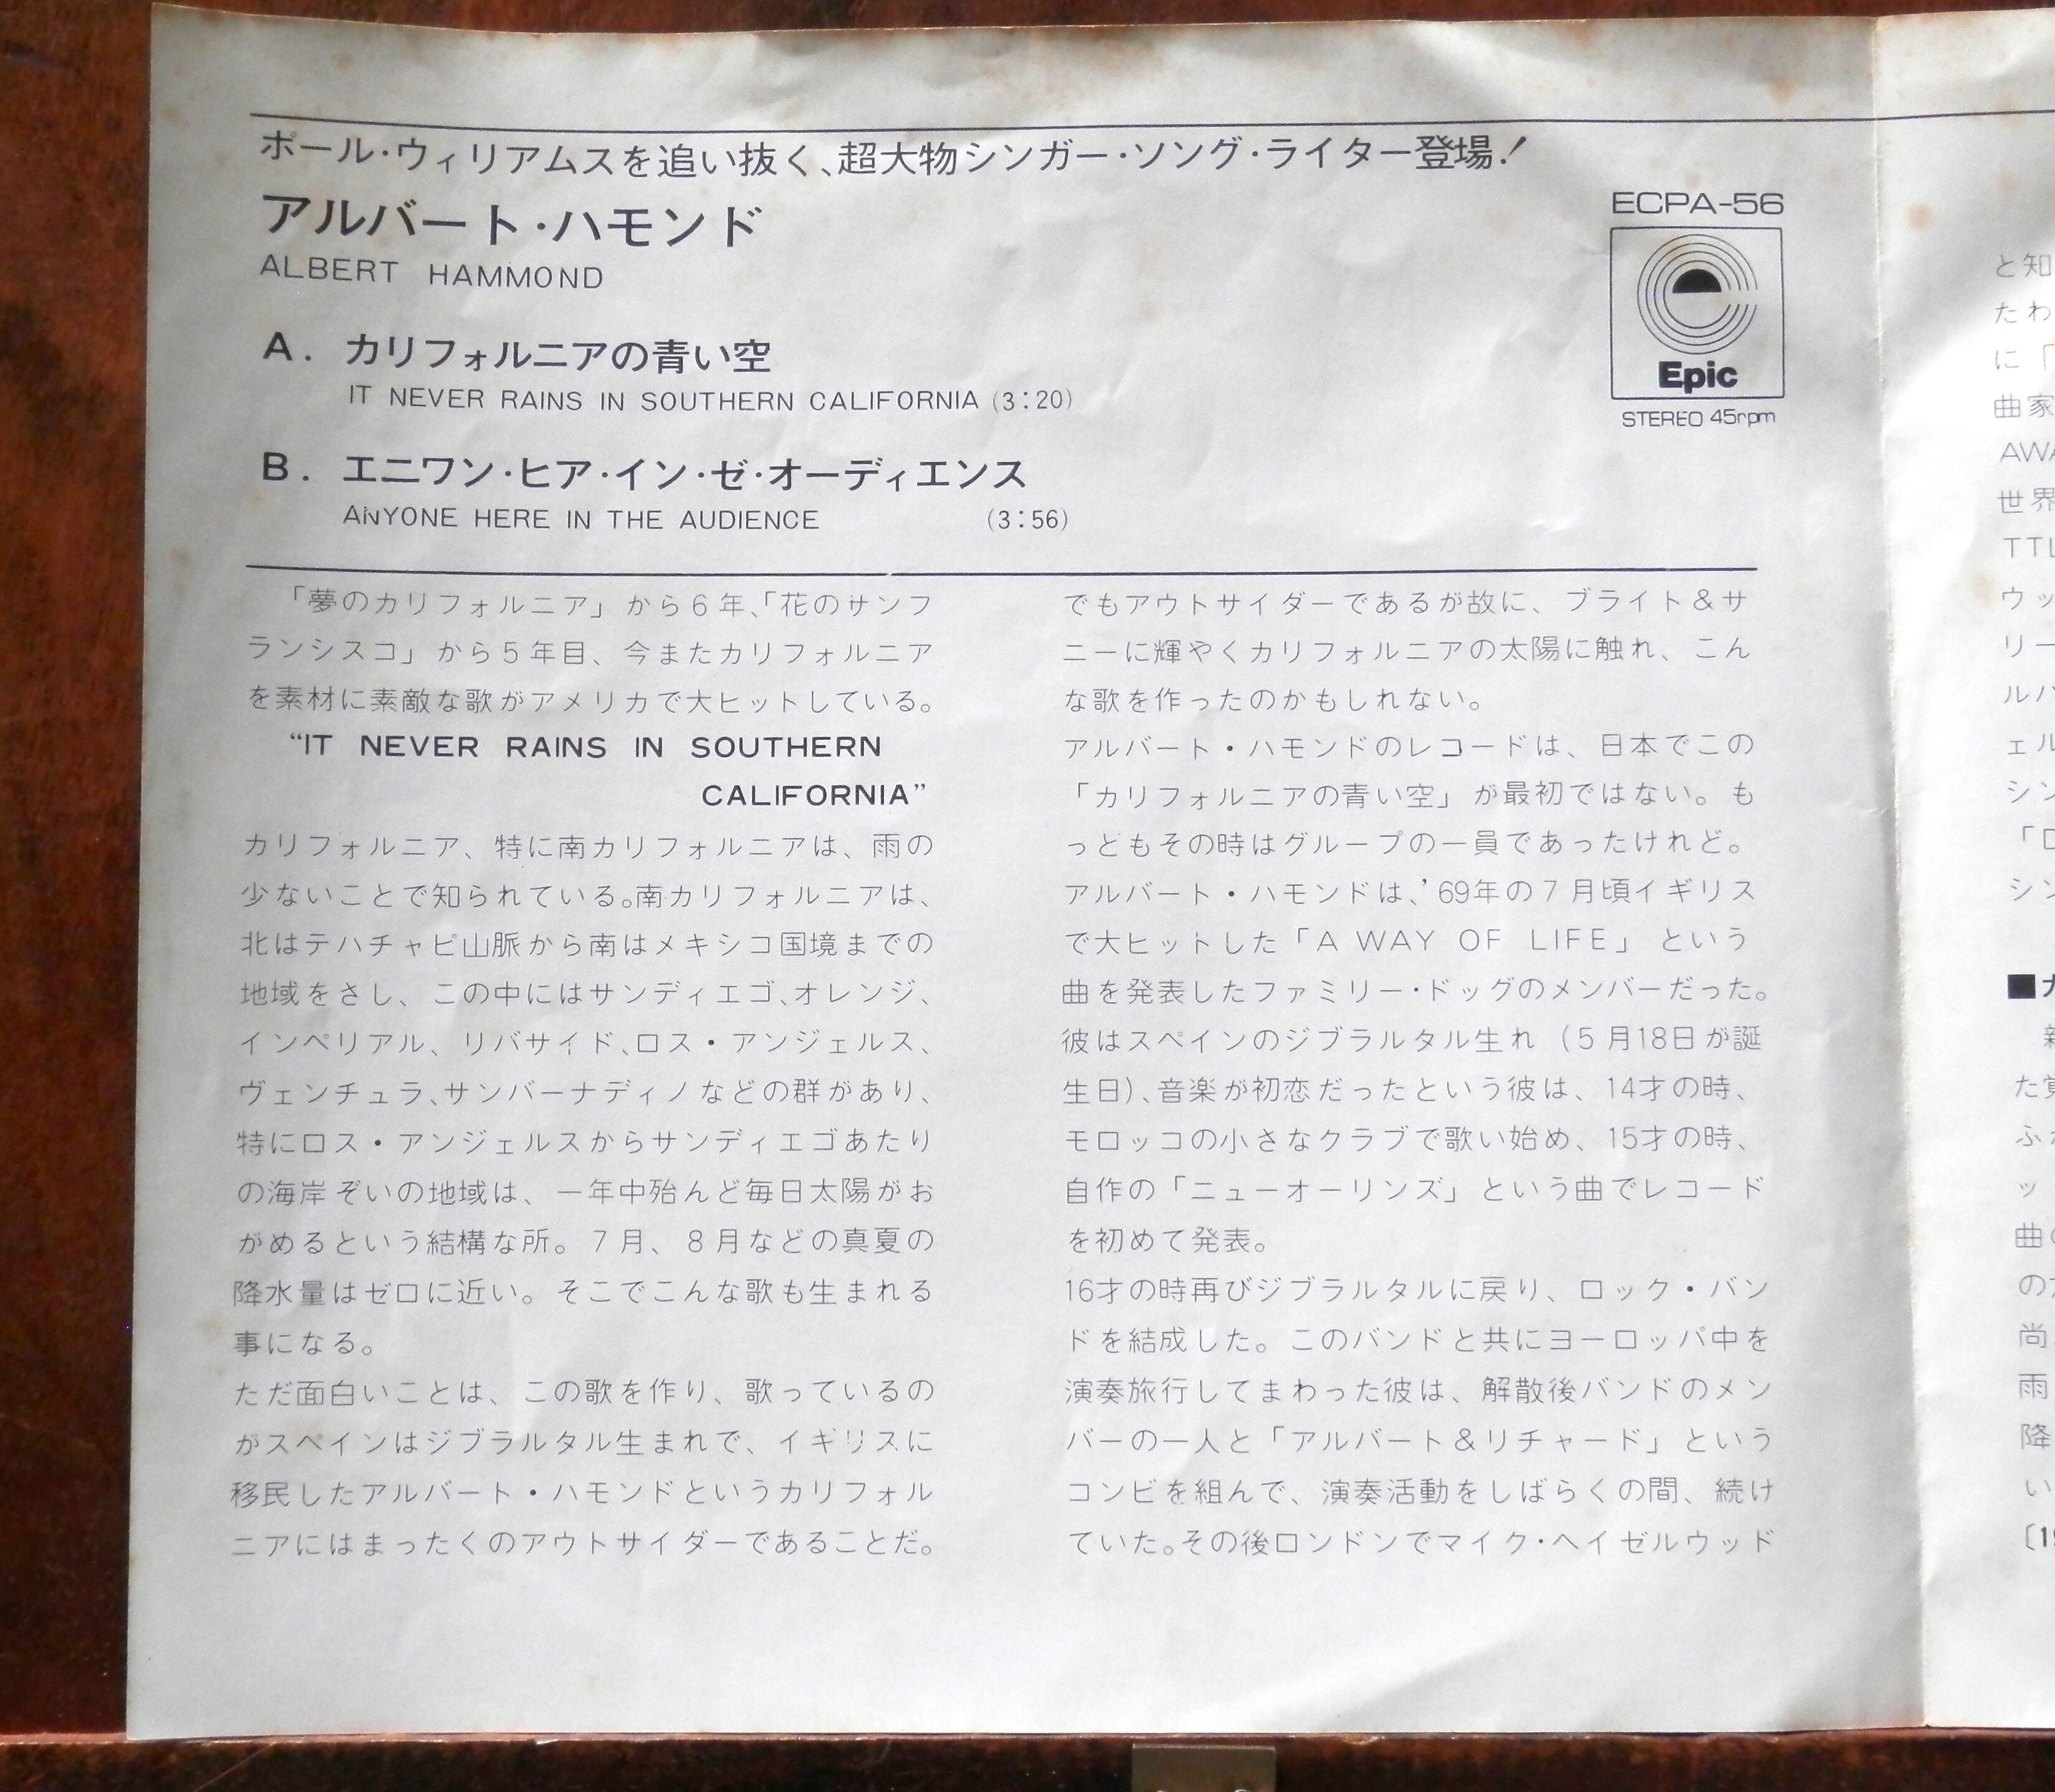 ポール・ウィリアムスを追い抜く、超大物シンガー・ソング・ライター登場！
アルバート・ハモンド
ALBERT HAMMOND
ECPA-56
Epic
STEREO 45rpm
A. カリフォルニアの青い空
IT NEVER RAINS IN SOUTHERN CALIFORNIA (3:20)
B. エニワン・ヒア・イン・ゼ・オーディエンス
ANYONE HERE IN THE AUDIENCE (3:56)
「夢のカリフォルニア」から6年、「花のサンフ
ランシスコ」から5年目、今またカリフォルニア
を素材に素敵な歌がアメリカで大ヒットしている。
“IT NEVER RAINS IN SOUTHERN
CALIFORNIA”
カリフォルニア、特に南カリフォルニアは、雨の
少ないことで知られている。南カリフォルニアは、
北はテハチャピ山脈から南はメキシコ国境までの
地域をさし、この中にはサンディエゴ、オレンジ、
インペリアル、リバサイド、ロス・アンジェルス、
ヴェンチュラ、サンバーナディノなどの群があり、
特にロス・アンジェルスからサンディエゴあたり
の海岸ぞいの地域は、一年中殆んど毎日太陽がお
がめるという結構な所。7月、8月などの真夏の
降水量はゼロに近い。そこでこんな歌も生まれる
事になる。
ただ面白いことは、この歌を作り、歌っているの
がスペインはジブラルタル生まれで、イギリスに
移民したアルバート・ハモンドというカリフォル
ニアにはまったくのアウトサイダーであることだ。
でもアウトサイダーであるが故に、ブライト＆サ
ニーに輝やくカリフォルニアの太陽に触れ、こん
な歌を作ったのかもしれない。
アルバート・ハモンドのレコードは、日本でこの
「カリフォルニアの青い空」が最初ではない。も
っともその時はグループの一員であったけれど。
アルバート・ハモンドは、’69年の7月頃イギリス
で大ヒットした「A WAY OF LIFE」という
曲を発表したファミリー・ドッグのメンバーだった。
彼はスペインのジブラルタル生れ（5月18日が誕
生日）、音楽が初恋だったという彼は、14才の時、
モロッコの小さなクラブで歌い始め、15才の時、
自作の「ニューオーリンズ」という曲でレコード
を初めて発表。
16才の時再びジブラルタルに戻り、ロック・バン
ドを結成した。このバンドと共にヨーロッパ中を
演奏旅行してまわった彼は、解散後バンドのメン
バーの一人と「アルバート＆リチャード」という
コンビを組んで、演奏活動をしばらくの間、続け
ていた。その後ロンドンでマイク・ヘイゼルウッド
と知
たわ
に「
曲家
AWA
世界
TTL
ウッ
リー
ルハ
ェル
シン
シン
■カ
た
ふ
ッ
曲の
の
尚
雨
降
い
〔19